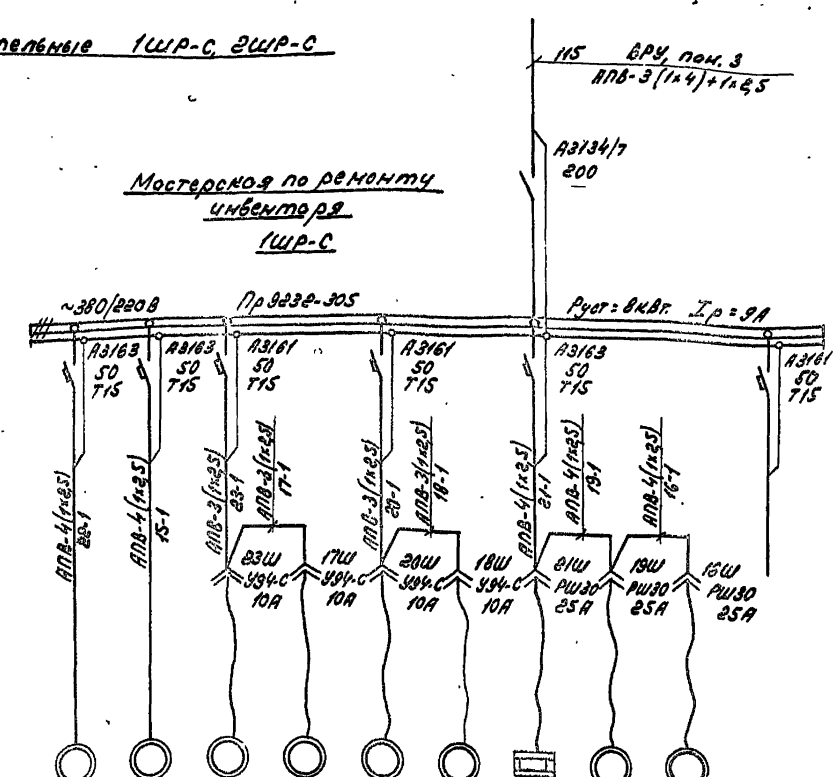 1ШР-С, 2ШР-С
115 ВРУ, пом. 3
АПВ-3(1×4)+1×2,5
А3134/7
200
Мастерская по ремонту
инвентаря
1ШР-С
~380/220В
Пр9232-305
Руст=8кВт. Iр=9А
А3163
50
Т15
А3163
50
Т15
А3161
50
Т15
А3161
50
Т15
А3163
50
Т15
А3161
50
Т15
АПВ-4(1×2,5)
22-1
АПВ-4(1×2,5)
15-1
АПВ-3(1×2,5)
23-1
АПВ-3(1×2,5)
17-1
АПВ-3(1×2,5)
20-1
АПВ-3(1×2,5)
18-1
АПВ-4(1×2,5)
21-1
АПВ-4(1×2,5)
19-1
АПВ-4(1×2,5)
16-1
23Ш
У94-С
10А
17Ш
У94-С
10А
20Ш
У94-С
10А
18Ш
У94-С
10А
21Ш
РШ30
25А
19Ш
РШ30
25А
16Ш
РШ30
25А